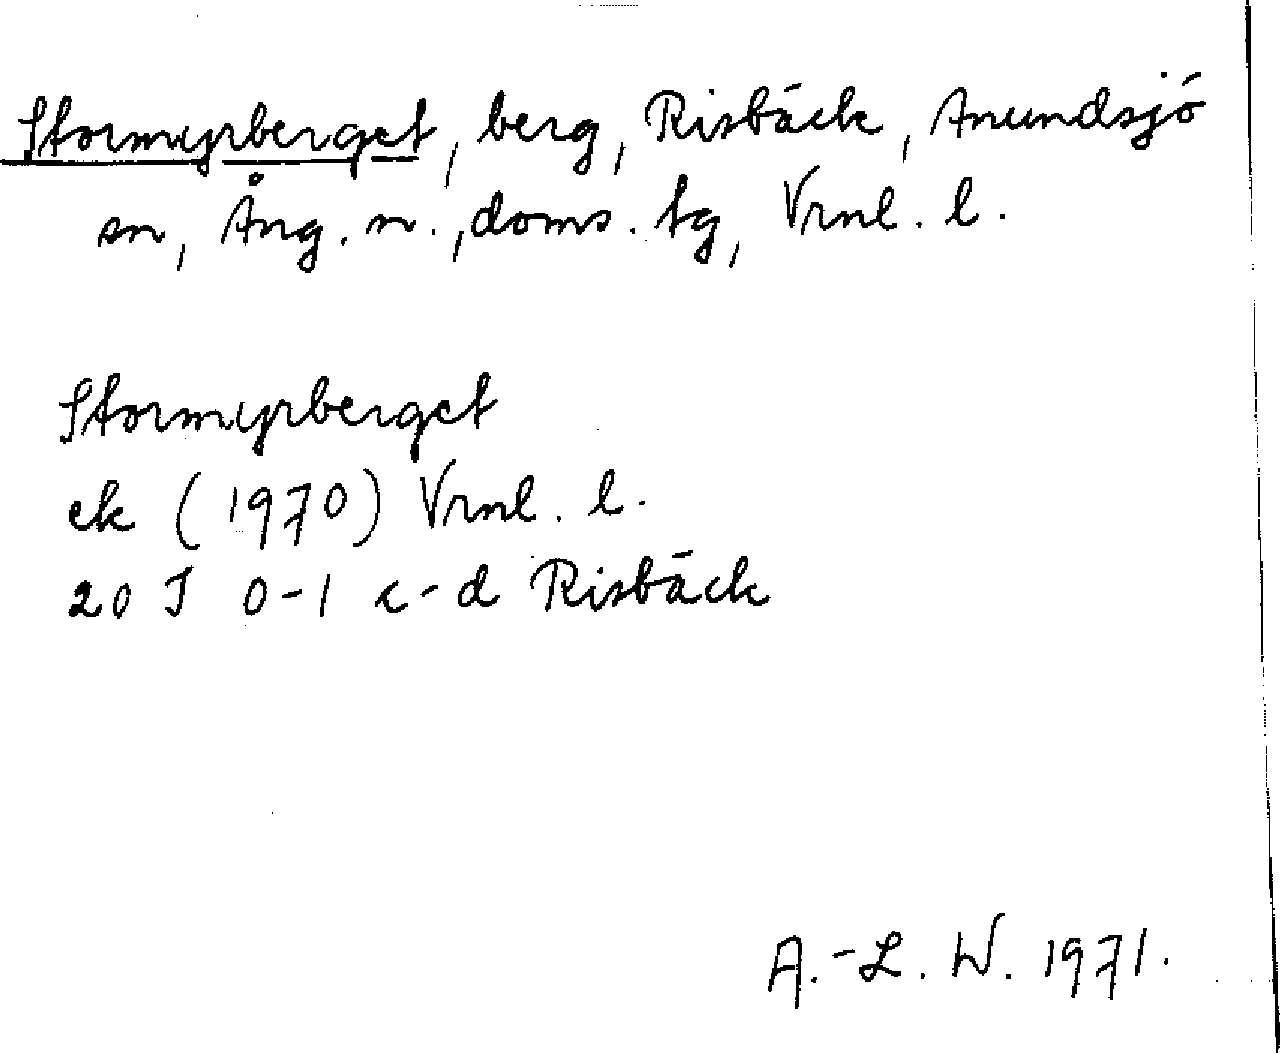 Stormyrberget, berg, Risbäck, Anundsjö
sn, Ång. n., doms. tg, Vrnl. l.
Stormyrberget
ek (1970) Vrnl. l.
20 J 0-1 c-d Risbäck
A.-L. W. 1971.